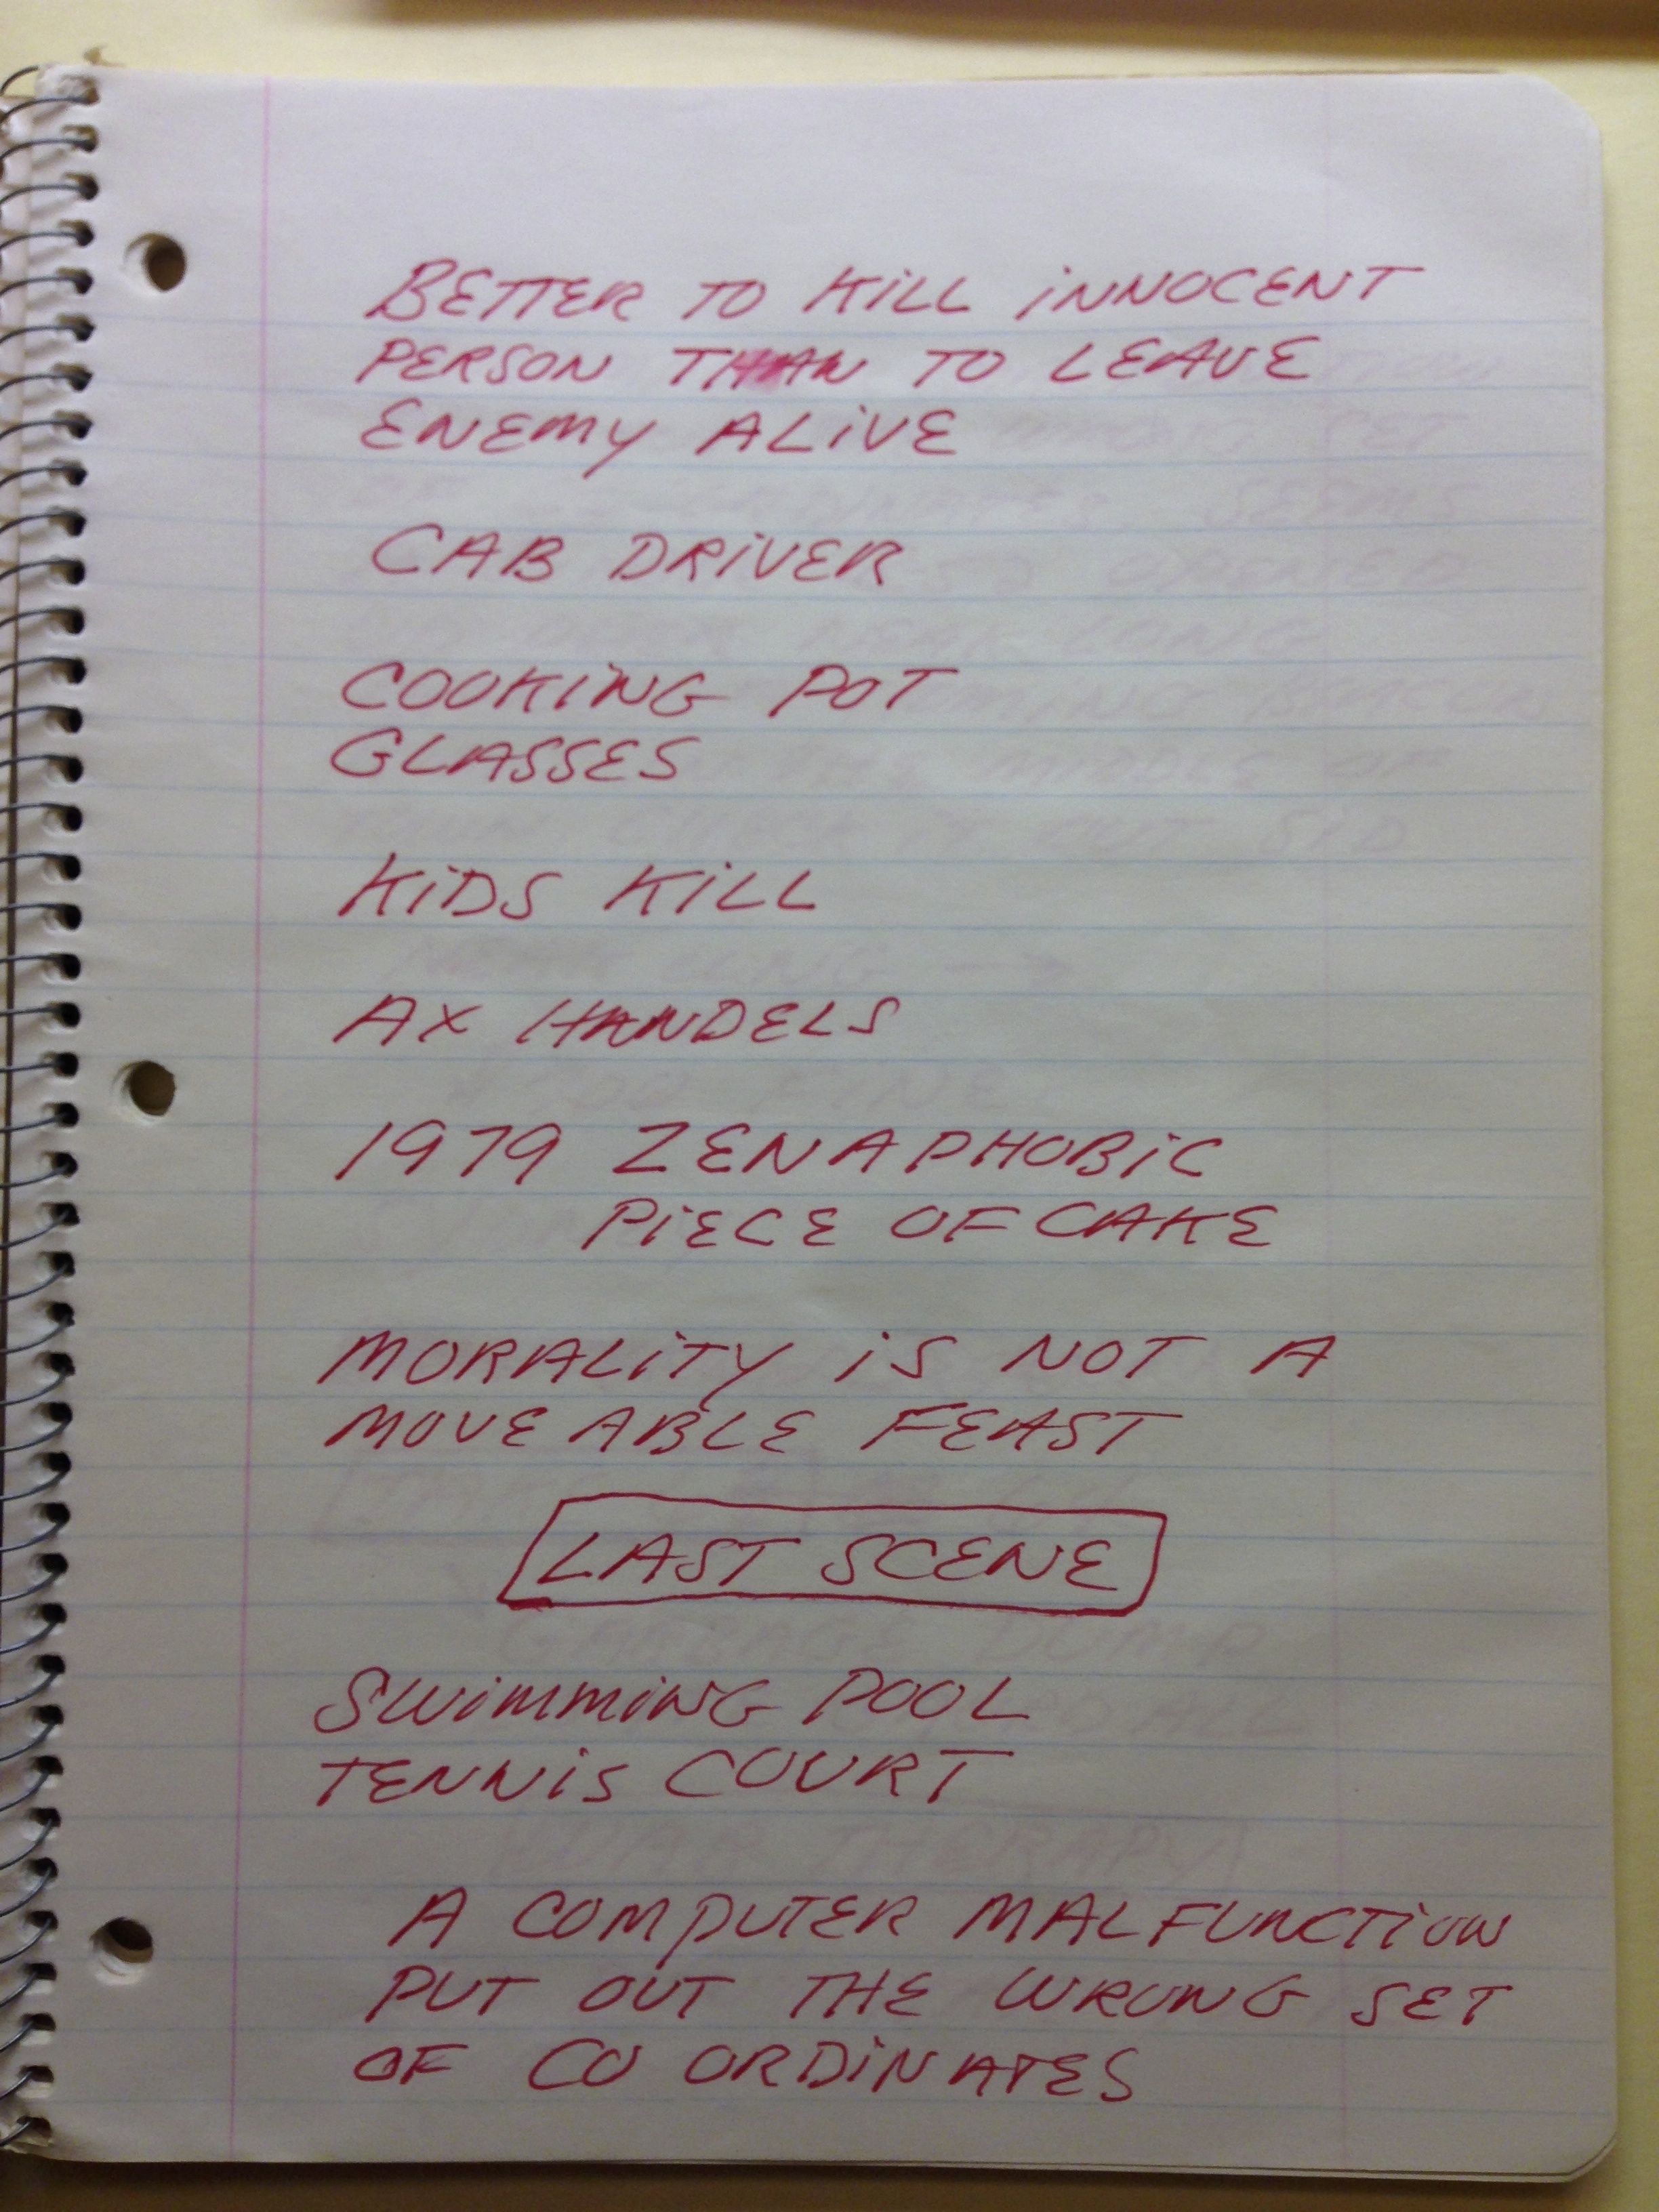 BETTER TO KILL INNOCENT
PERSON THAN TO LEAVE
ENEMY ALIVE
CAB DRIVER
COOKING POT
GLASSES
KIDS KILL
AX HANDELS
1979 ZENAPHOBIC
PIECE OF CAKE
MORALITY IS NOT A
MOVEABLE FEAST
LAST SCENE
SWIMMING POOL
TENNIS COURT
A COMPUTER MALFUNCTION
PUT OUT THE WRONG SET
OF CO ORDINATES